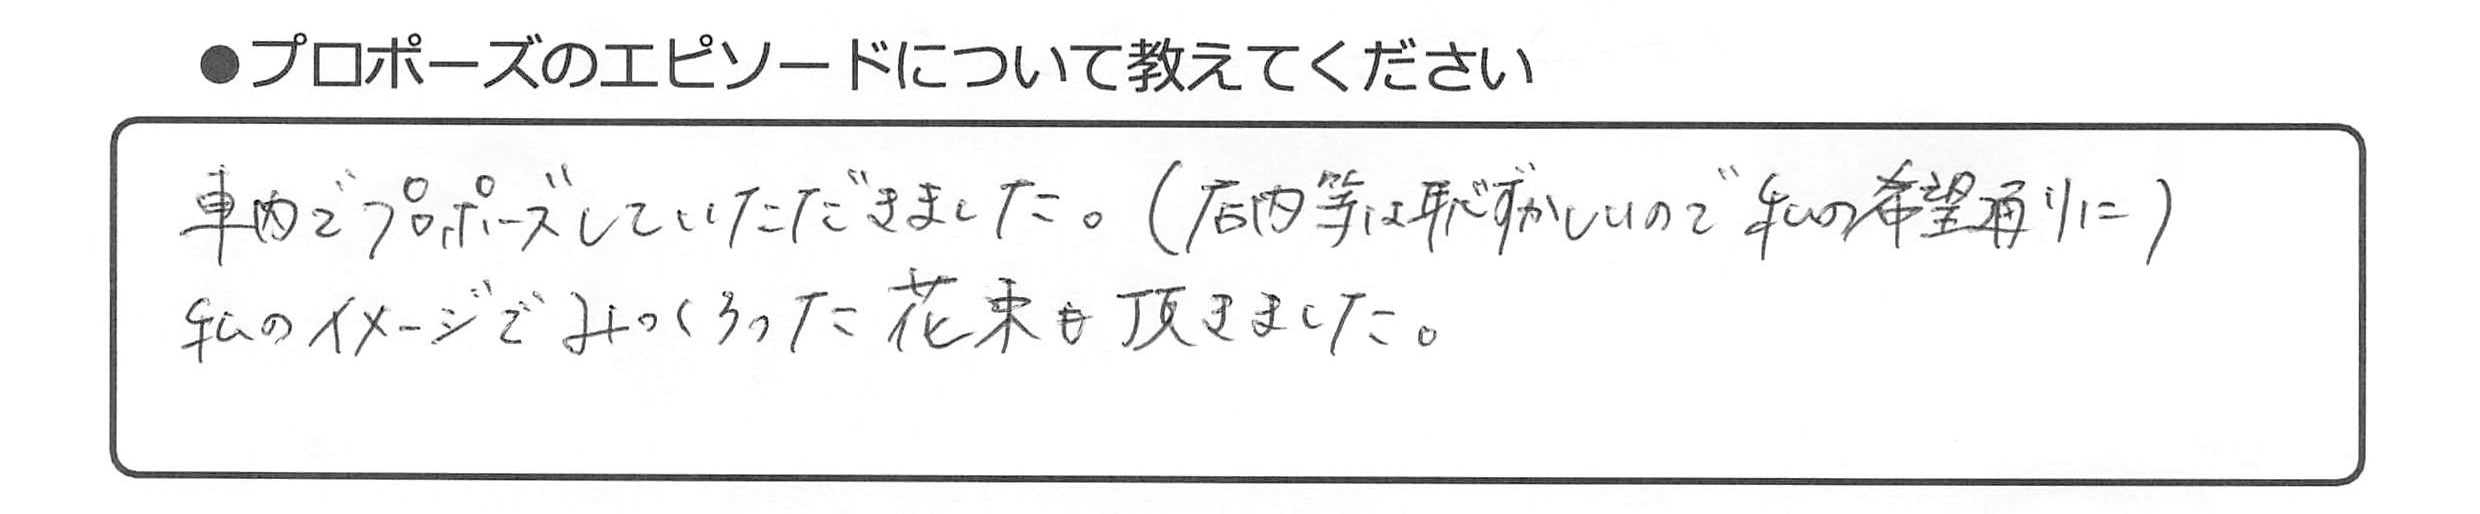 ●プロポーズのエピソードについて教えてください
車内でプロポーズしていただきました。(店内等は恥ずかしいので私の希望通りに)
私のイメージでみつくろった花束も頂きました。